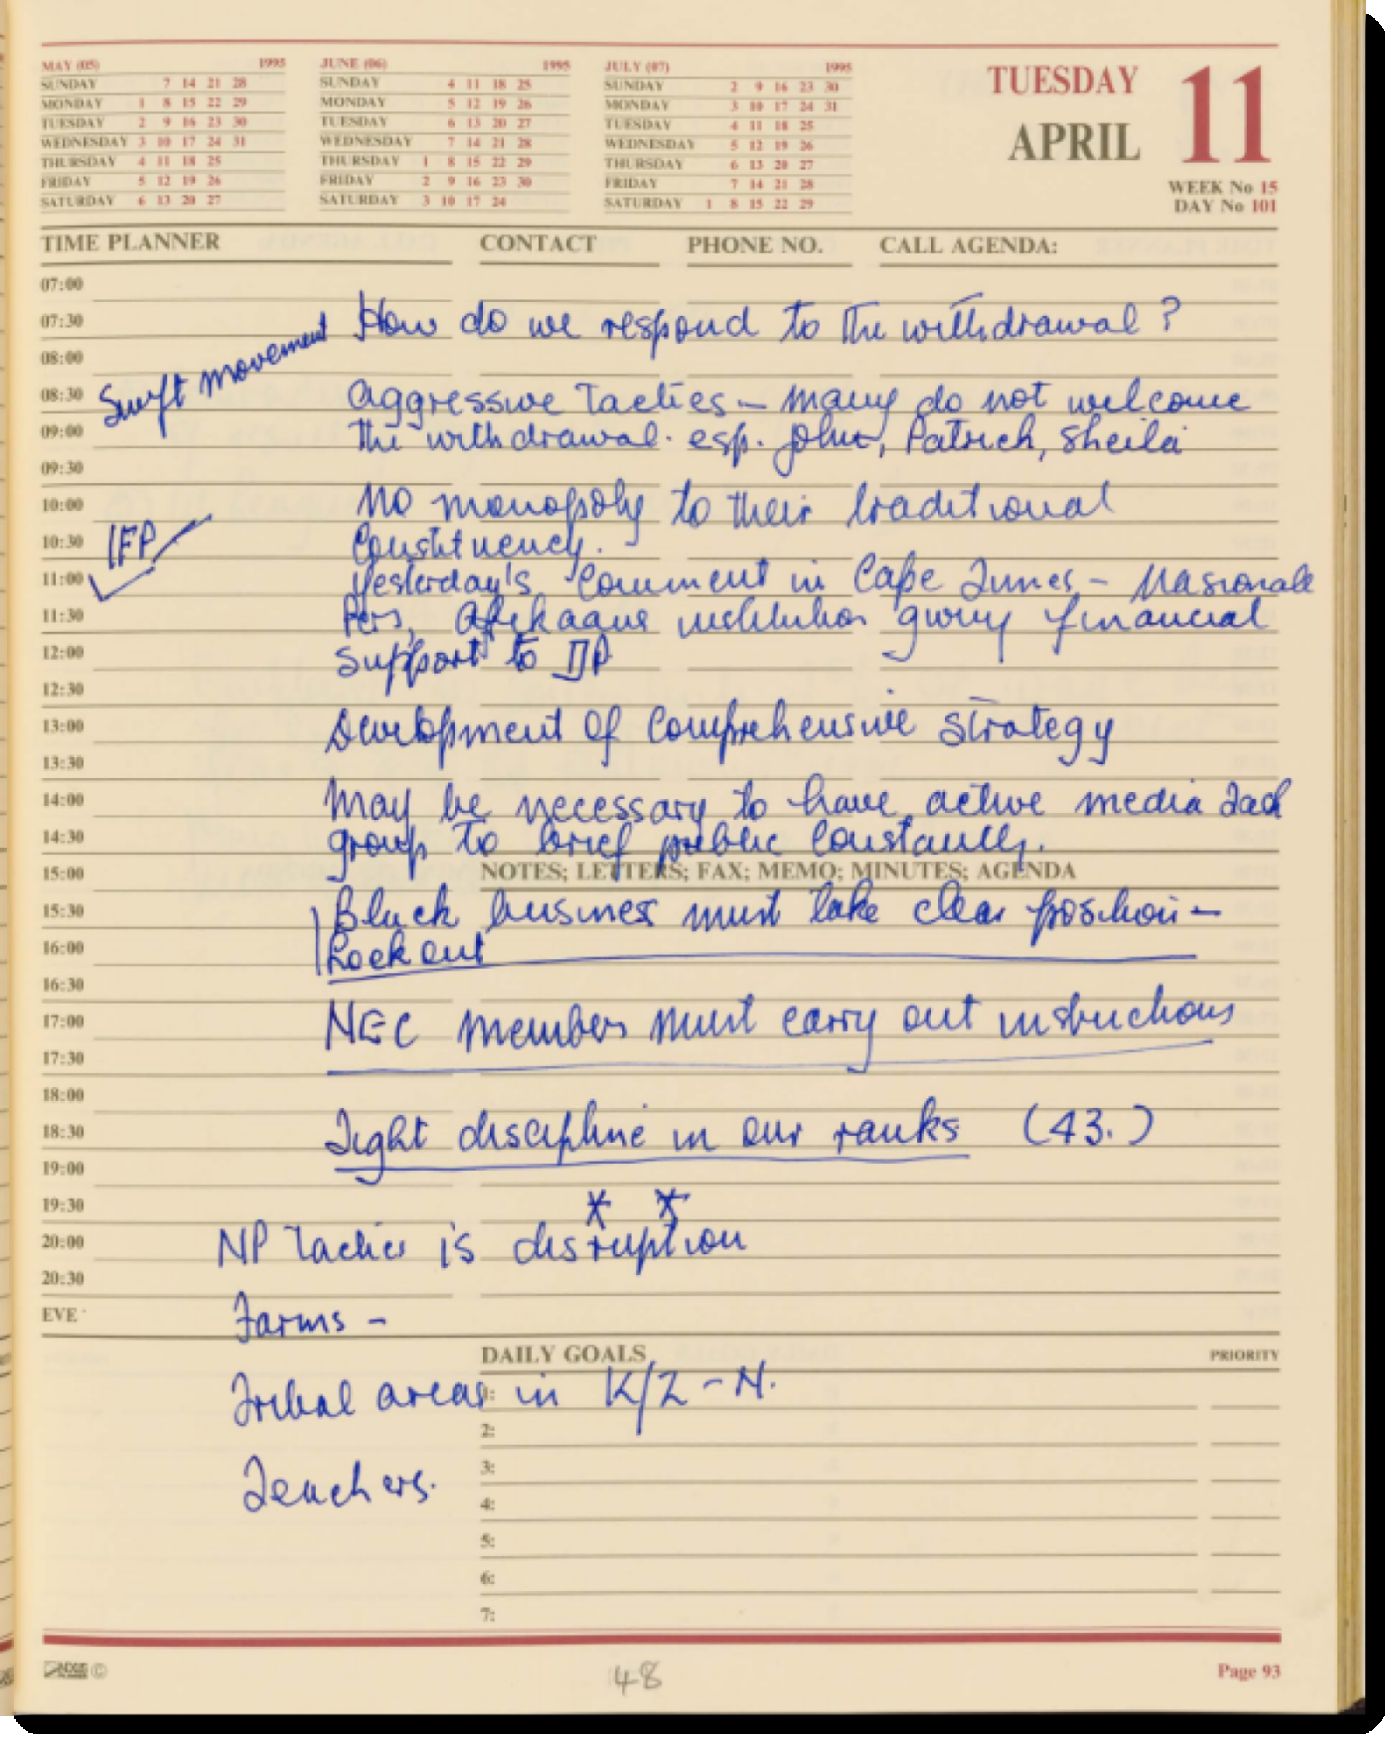 MAY (05) 1995
SUNDAY 7 14 21 28
MONDAY 1 8 15 22 29
TUESDAY 2 9 16 23 30
WEDNESDAY 3 10 17 24 31
THURSDAY 4 11 18 25
FRIDAY 5 12 19 26
SATURDAY 6 13 20 27
JUNE (06) 1995
SUNDAY 4 11 18 25
MONDAY 5 12 19 26
TUESDAY 6 13 20 27
WEDNESDAY 7 14 21 28
THURSDAY 1 8 15 22 29
FRIDAY 2 9 16 23 30
SATURDAY 3 10 17 24
JULY (07) 1995
SUNDAY 2 9 16 23 30
MONDAY 3 10 17 24 31
TUESDAY 4 11 18 25
WEDNESDAY 5 12 19 26
THURSDAY 6 13 20 27
FRIDAY 7 14 21 28
SATURDAY 1 8 15 22 29
TUESDAY 11
APRIL
WEEK No 15
DAY No 101
TIME PLANNER CONTACT PHONE NO. CALL AGENDA:
07:00
07:30 How do we respond to the withdrawal ?
08:00 Swift movement
08:30 Aggressive Tactics – many do not welcome
09:00 the withdrawal. esp. John, Patrick, Sheila
09:30
10:00 No monopoly to their traditional
10:30 IFP Constituency.
11:00 Yesterday's Comment in Cape Times – Nasionale
11:30 Pers, Afrikaans institution giving financial
12:00 support to DP
12:30
13:00 Development of Comprehensive Strategy
13:30
14:00 May be necessary to have active media
14:30 group to brief public Constantly.
15:00 NOTES; LETTERS; FAX; MEMO; MINUTES; AGENDA
15:30 Black business must take clear position –
16:00 Lockout
16:30
17:00 NEC members must carry out instructions
17:30
18:00
18:30 Tight discipline in our ranks (43.)
19:00
19:30 * *
20:00 NP Tactics is disruption
20:30
EVE Farms –
DAILY GOALS PRIORITY
1: Tribal areas in K/Z – N.
2:
3:
Teachers.
4:
5:
6:
7:
48
Page 93